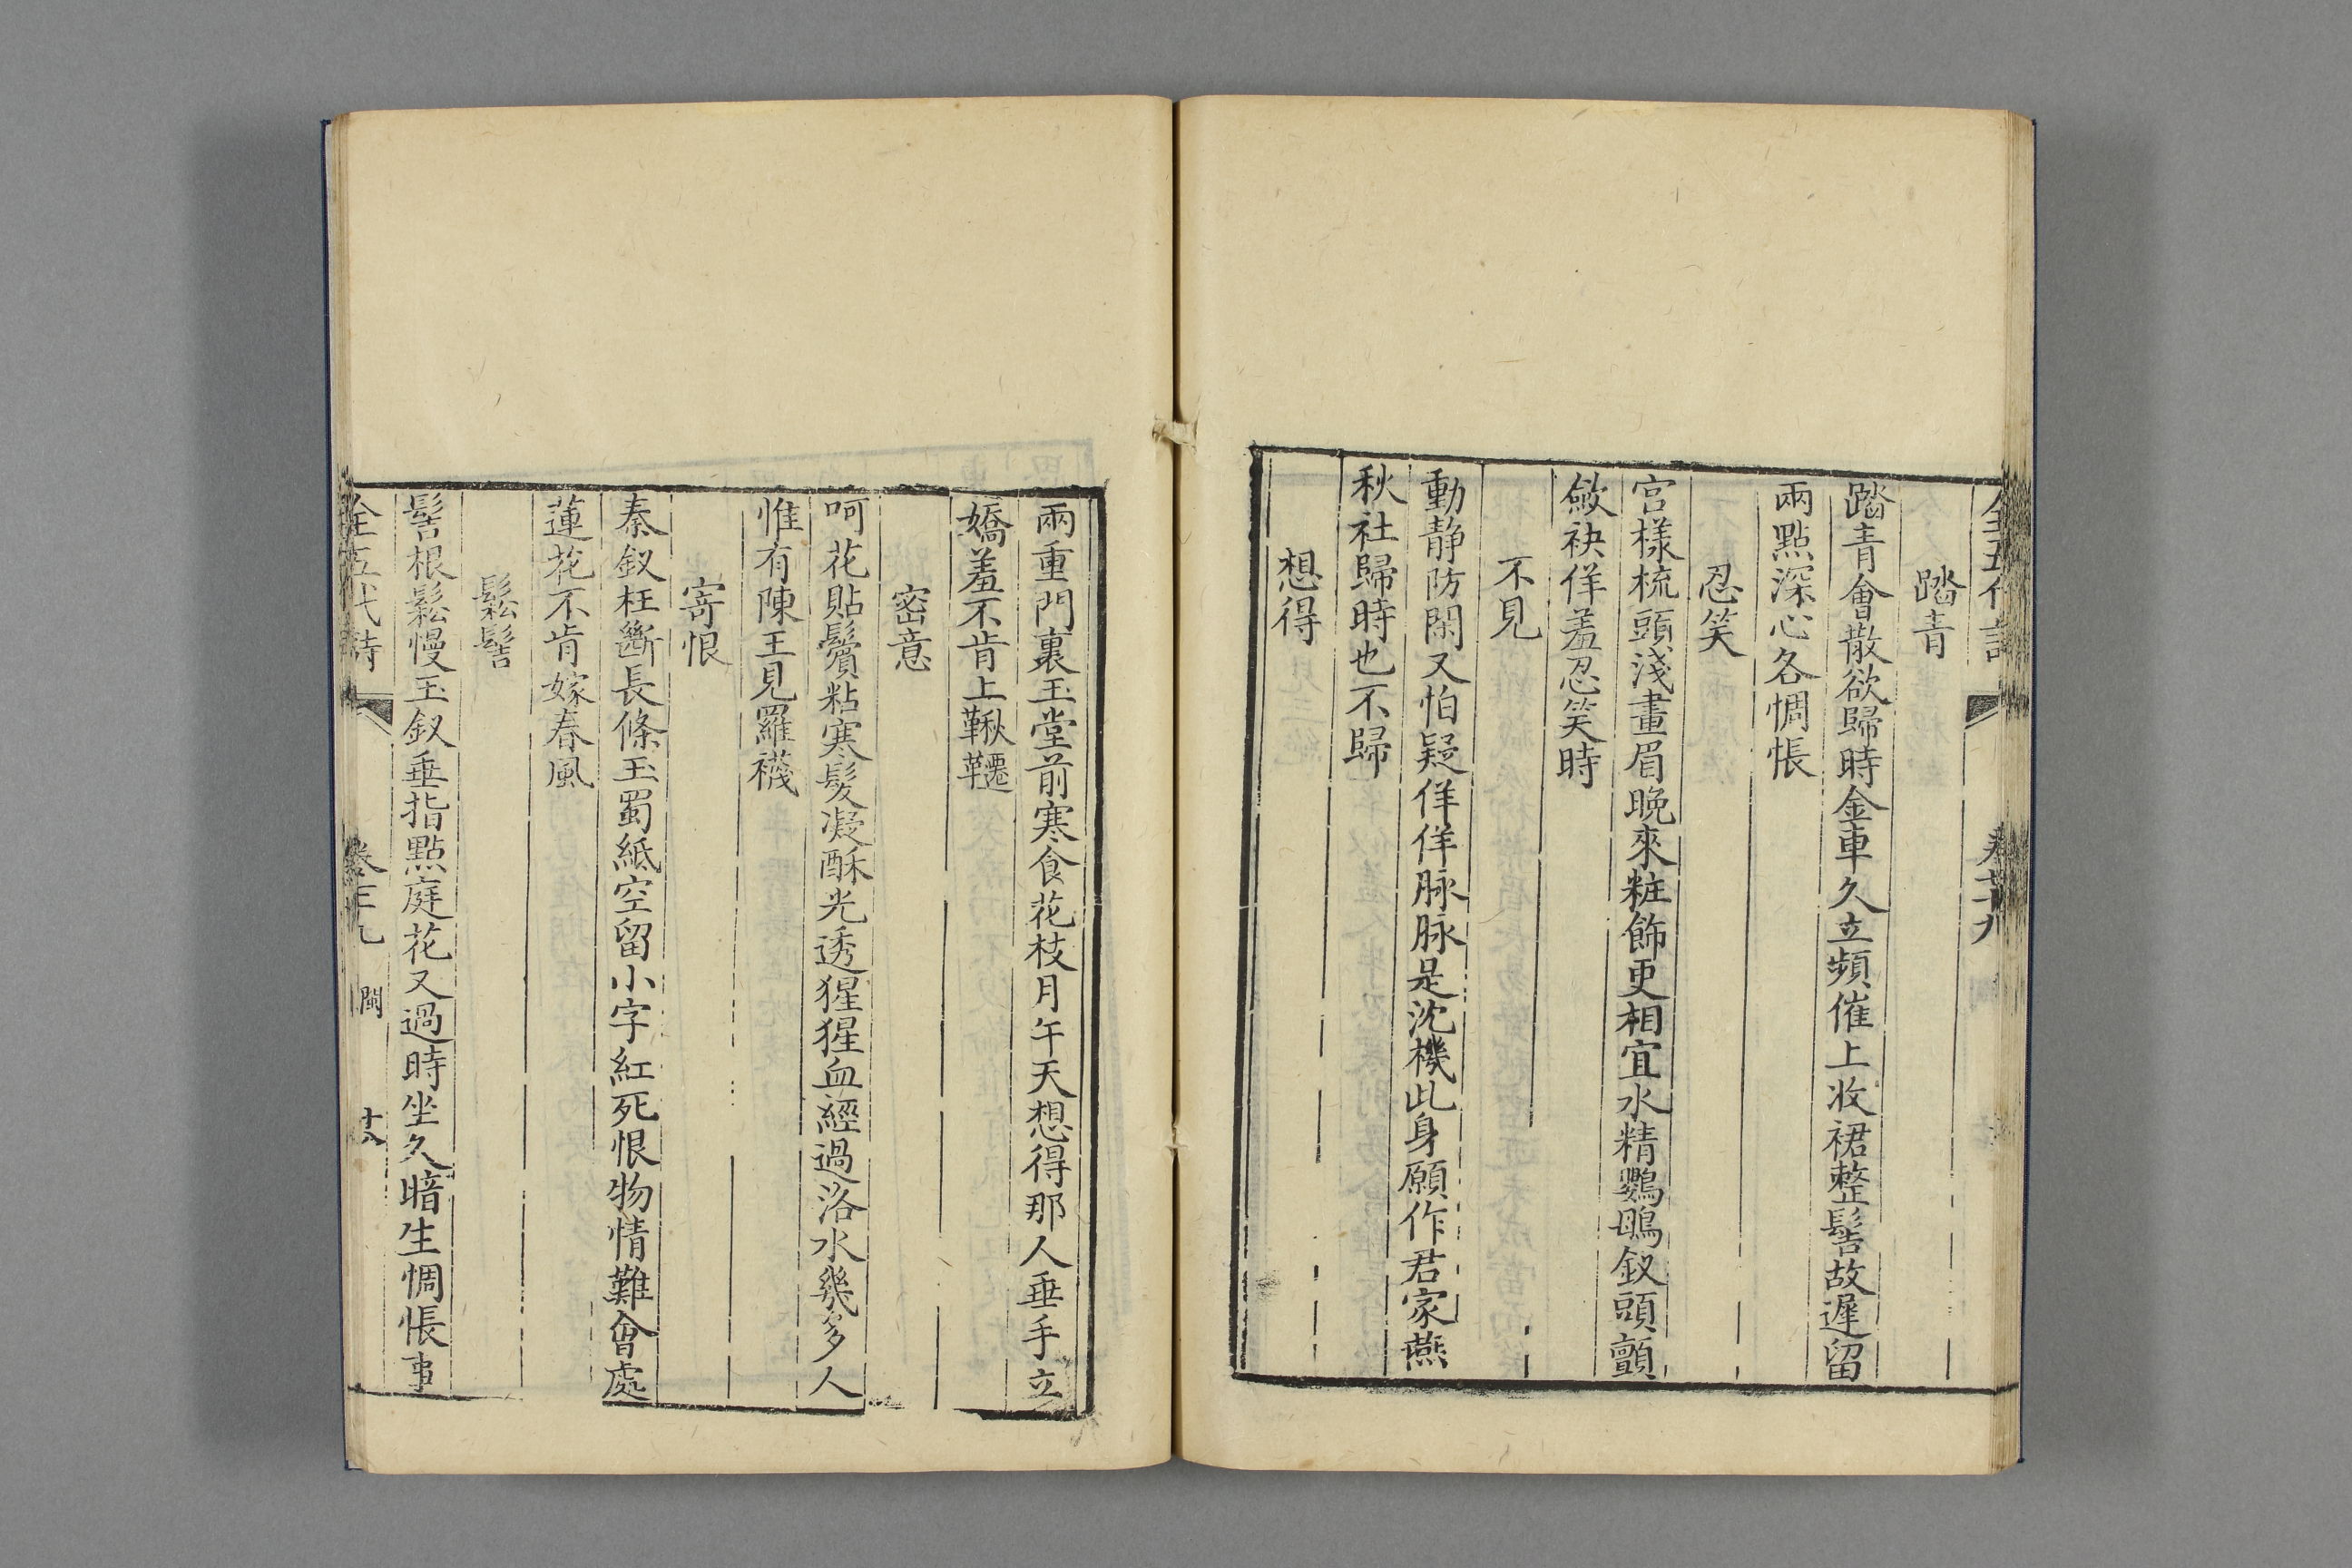 全五代詩
卷七十九
踏青
踏青會散欲歸時金車久立頻催上收裙整髻故遲留
兩點深心各惆悵
忍笑
宮樣梳頭淺畫眉晚來粧飾更相宜水精鸚鴠釵頭顫
斂袂佯羞忍笑時
不見
動静防閑又怕疑佯佯脉脉是沈機此身願作君家燕
秋社歸時也不歸
想得
兩重門裏玉堂前寒食花枝月午天想得那人垂手立
嬌羞不肯上鞦韆
密意
呵花貼鬢粘寒髮凝酥光透猩猩血經過洛水幾多人
惟有陳王見羅襪
寄恨
秦釵枉斷長條玉蜀紙空留小字紅死恨物情難會處
蓮花不肯嫁春風
鬆髻
髻根鬆慢玉釵垂指點庭花又過時坐久暗生惆悵事
全五代詩
閩
十八